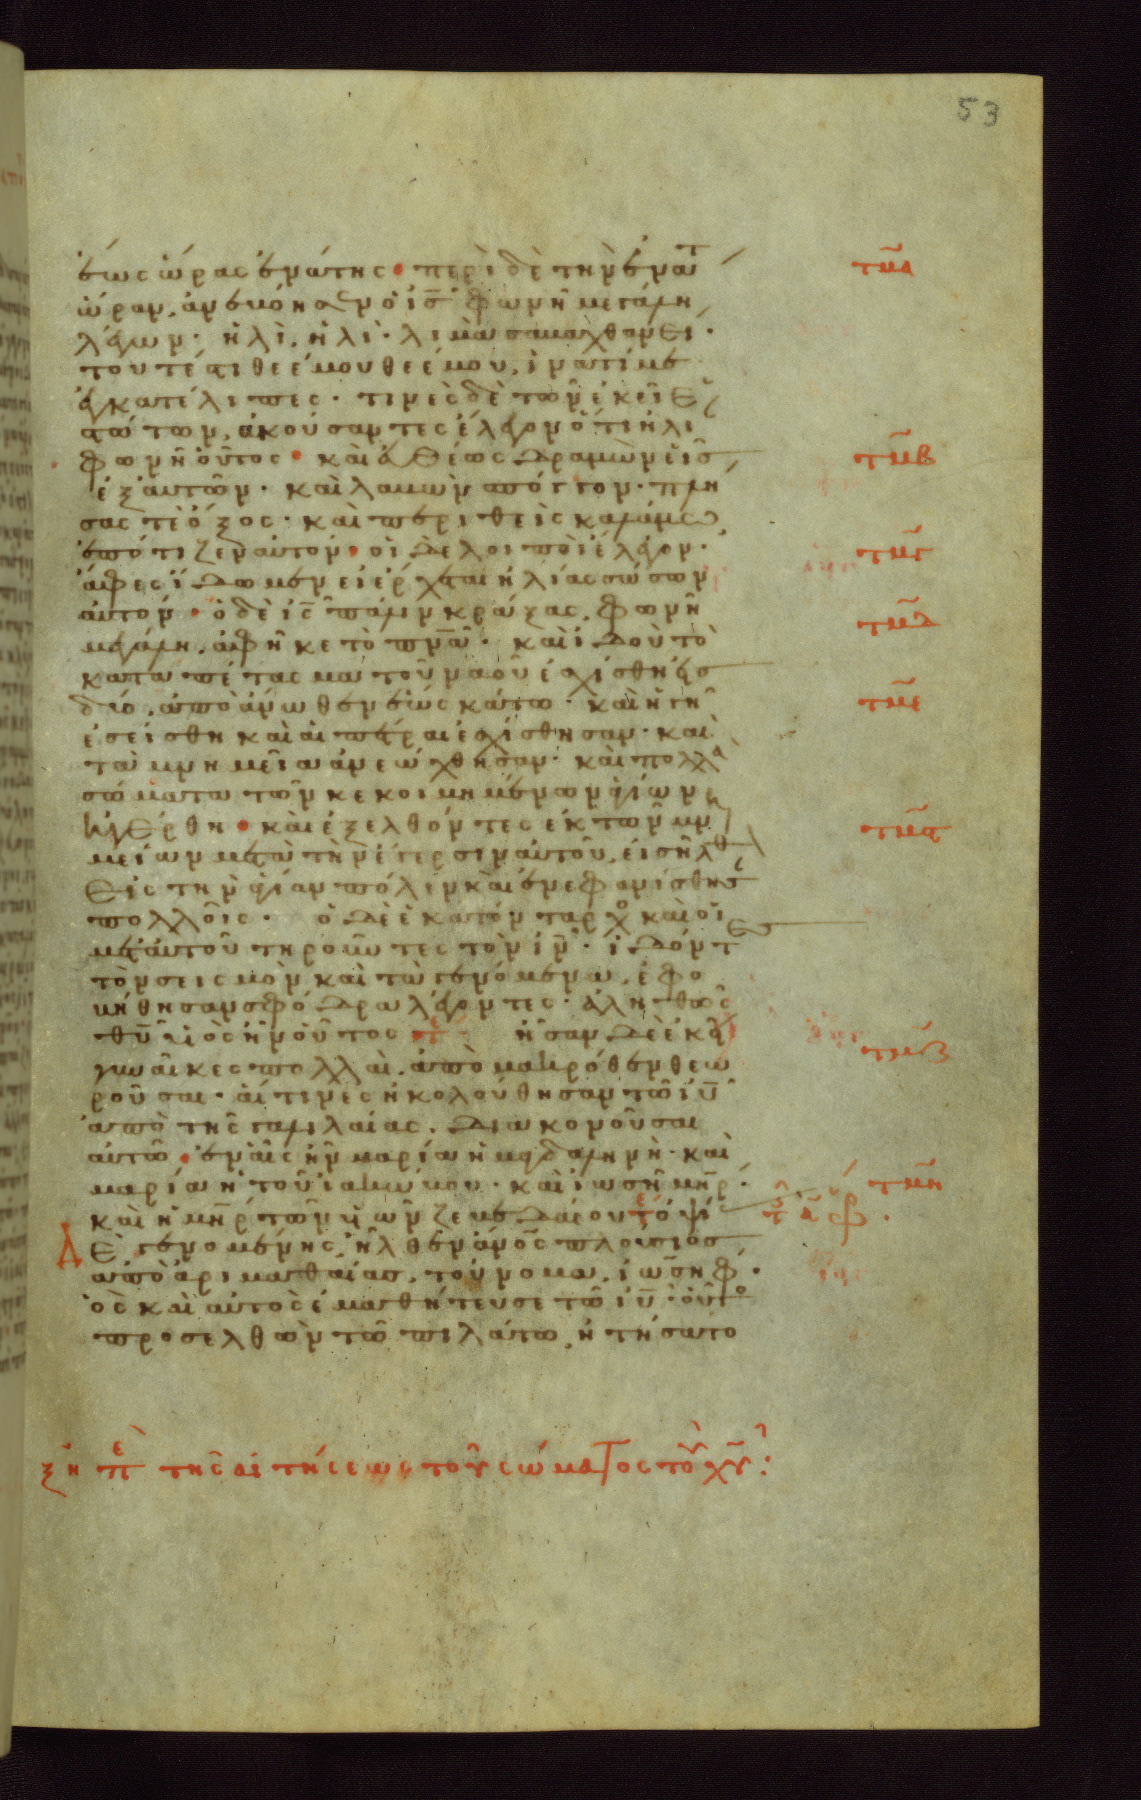 53
ἕως ὥρας ἐνάτης · περὶ δὲ τὴν ἐνάτ
τμα
ὥραν, ἀνεβόησεν ὁ ις φωνῆ μεγάλη
λέγων · ἠλὶ, ἠλὶ · λιμὰ σαβαχθανεί ·
τουτέστι θεέ μου θεέ μου, ἱνατί με
ἐγκατέλιπες · τινὲς δὲ τῶν ἐκεῖ ἑ
στώτων, ἀκούσαντες ἔλεγον ὅτι ἠλι
φωνῆ οὗτος · καὶ εὐθέως δραμὼν εἷσ
τμβ
ἐξ αὐτῶν · καὶ λαβὼν σπόγγον · πλη
σας τὲ ὄξος · καὶ περιθεὶς καλάμω
ἐπότιζεν αὐτόν · οἱ δὲ λοιποὶ ἔλεγον ·
τμγ
ἄφες ἴδωμεν εἰ ἔρχεται ἠλίας σώσων
αὐτόν · ὁ δὲ ις πάλιν κράξας φωνῆ
τμδ
μεγάλη, ἀφῆκε τὸ πνα · καὶ ἰδοὺ τὸ
καταπέτασμα τοῦ ναοῦ ἐσχίσθη εἰσ
δύο, ἀπὸ ἄνωθεν ἕως κάτω · καὶ ἡ γῆ
τμε
ἐσείσθη καὶ αἱ πέτραι ἐσχίσθησαν · καὶ
τὰ μνημεῖα ἀνεώχθησαν · καὶ πολλὰ
σώματα τῶν κεκοιμημένων ἁγίων
ἠγέρθη · καὶ ἐξελθόντες ἐκ τῶν μνη
τμς
μείων μετὰ τὴν ἔγερσιν αὐτοῦ, εἰσῆλθ
εἰς τὴν ἁγίαν πόλιν καὶ ἐνεφανίσθησ
πολλοῖς · ὁ δὲ ἑκατόνταρχο καὶ οἱ
μετ αὐτοῦ τηροῦντες τὸν ιν · ἰδόντες
τὸν σεισμὸν καὶ τὰ γενόμενα, ἐφο
βήθησαν σφόδρα λέγοντες · ἀληθῶς
θυ υἱὸς ἦν οὗτος ἦσαν δὲ ἐκεῖ
τμζ
γυναῖκες πολλαὶ, ἀπὸ μακρόθεν θεω
ροῦσαι · αἵτινες ἠκολούθησαν τῶ ιυ
ἀπὸ τῆς γαλιλαίας, διακονοῦσαι
αὐτῶ · ἐν αἷς ἦν μαρία ἡ μαγδαληνὴ · καὶ
μαρία ἡ τοῦ ἰακώβου · καὶ ἰωσῆ μηρ ·
τμη
καὶ ἡ μηρ τῶν υἱῶν ζεβεδαίου ὀψί
ας δὲ γενομένης, ἦλθεν ἀνος πλούσιοσ
ἀπὸ ἀριμαθαίας, τοὔνομα, ἰωσηφ ·
ὃς καὶ αὐτὸς ἐμαθήτευσε τῶ ιυ · οὗτο
προσελθὼν τῶ πιλάτω, ἠτήσατο
ξη πε τῆς αἰτήσεως τοῦ σώματος τοῦ χυ :